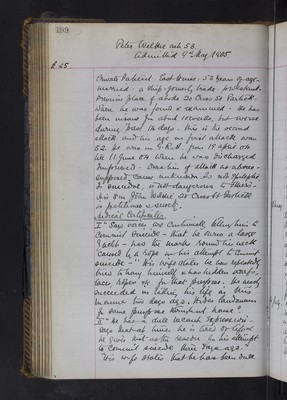 199
Peter Welsh aet 53.
Admitted 9th May 1905
£25.
Private Patient. East House. 53 years of age.
married. a ship-joiner by trade. protestant.
Previous place of abode 20 Cross St Partick
where he was found & examined. He has
been insane for about 10 weeks, but worse
during past 14 days. This is his second
attack and his age on first attack was
52. He was in G.R.A. from 19 april 04
till 11 June 04 when he was discharged
Duration of attack as above.
supposed cause unknown. Is not epileptic
is suicidal, is not dangerous to others.
His son John 20 Cross St Partick
is petitioner
Medical Certificates
I "Says voices are continually telling him to
commit suicide - that he
has the mark round his neck
caused by a rope in his attempt to commit
suicide -" "His wife states he has repeatedly
tries to hang himself & has hidden
ropes etc for that purpose. He nearly
succeeded in taking his life in this
manner two days ago. Hides laudanum
for same purpose throughout house"
II "He has a dull vacant expression.
says that at times he is tired of life &
he gives that as the reason for his attempt
to commit suicide two days ago."
"His wife states that he has been dull